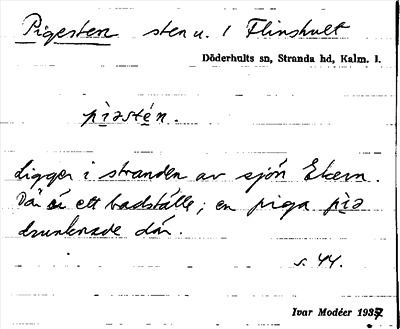 Pigesten sten u. / Flinshult
Döderhults sn, Stranda hd, Kalm. l.
pìəstén.
Ligger i stranden av sjön Ekern.
Där är ett badställe; en piga pìə
drunknade där.
s. 44.
Ivar Modéer 1937